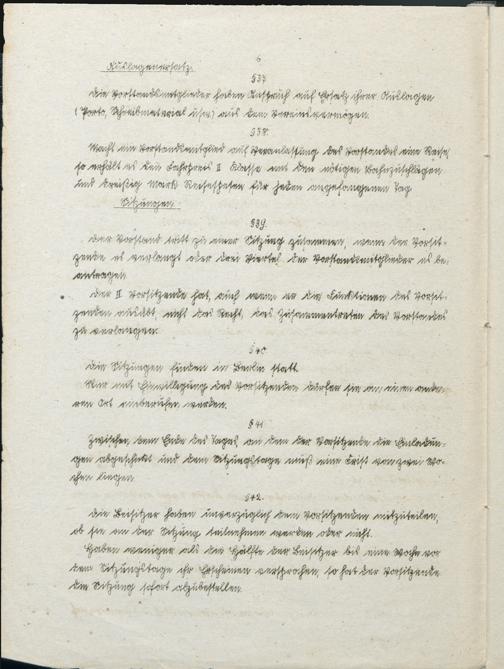 6
Auslagenersatz.
§37.
Die Vorstandsmitglieder haben Anspruch auf Ersatz ihrer Auslagen
(Porto, Schreibmaterial usw.) aus dem Vereinsvermögen.
§38.
Macht ein Vorstandsmitglied auf Veranlassung des Vorstandes eine Reise,
so erhält es den Fahrpreis II Klasse mit den nötigen Bahnzuschlägen
und dreißig Mark Reisespesen für jeden angefangenen Tag
Sitzungen.
§39.
Der Vorstand tritt zu einer Sitzung zusammen, wenn der Vorsit-
zende es verlangt oder drei Viertel der Vorstandsmitglieder es be-
antragen.
Der II Vorsitzende hat, auch wenn er die Funktionen des Vorsit-
zenden ausübt, nicht das Recht, das Zusammentreten des Vorstandes
zu verlangen.
§40.
Die Sitzungen finden in Berlin statt.
Nur mit Einwilligung des Vorsitzenden dürfen sie an einen ande-
ren Ort einberufen werden.
§41.
Zwischen dem Ende des Tages, an dem der Vorsitzende die Einladun-
gen abgeschickt und dem Sitzungstage muß eine Frist von zwei Wo-
chen liegen.
§42.
Die Beisitzer haben unverzüglich dem Vorsitzenden mitzuteilen,
ob sie an der Sitzung teilnehmen werden oder nicht.
Haben weniger als die Hälfte der Beisitzer bis eine Woche vor
dem Sitzungstage ihr Erscheinen versprochen, so hat der Vorsitzende
die Sitzung sofort abzubestellen.